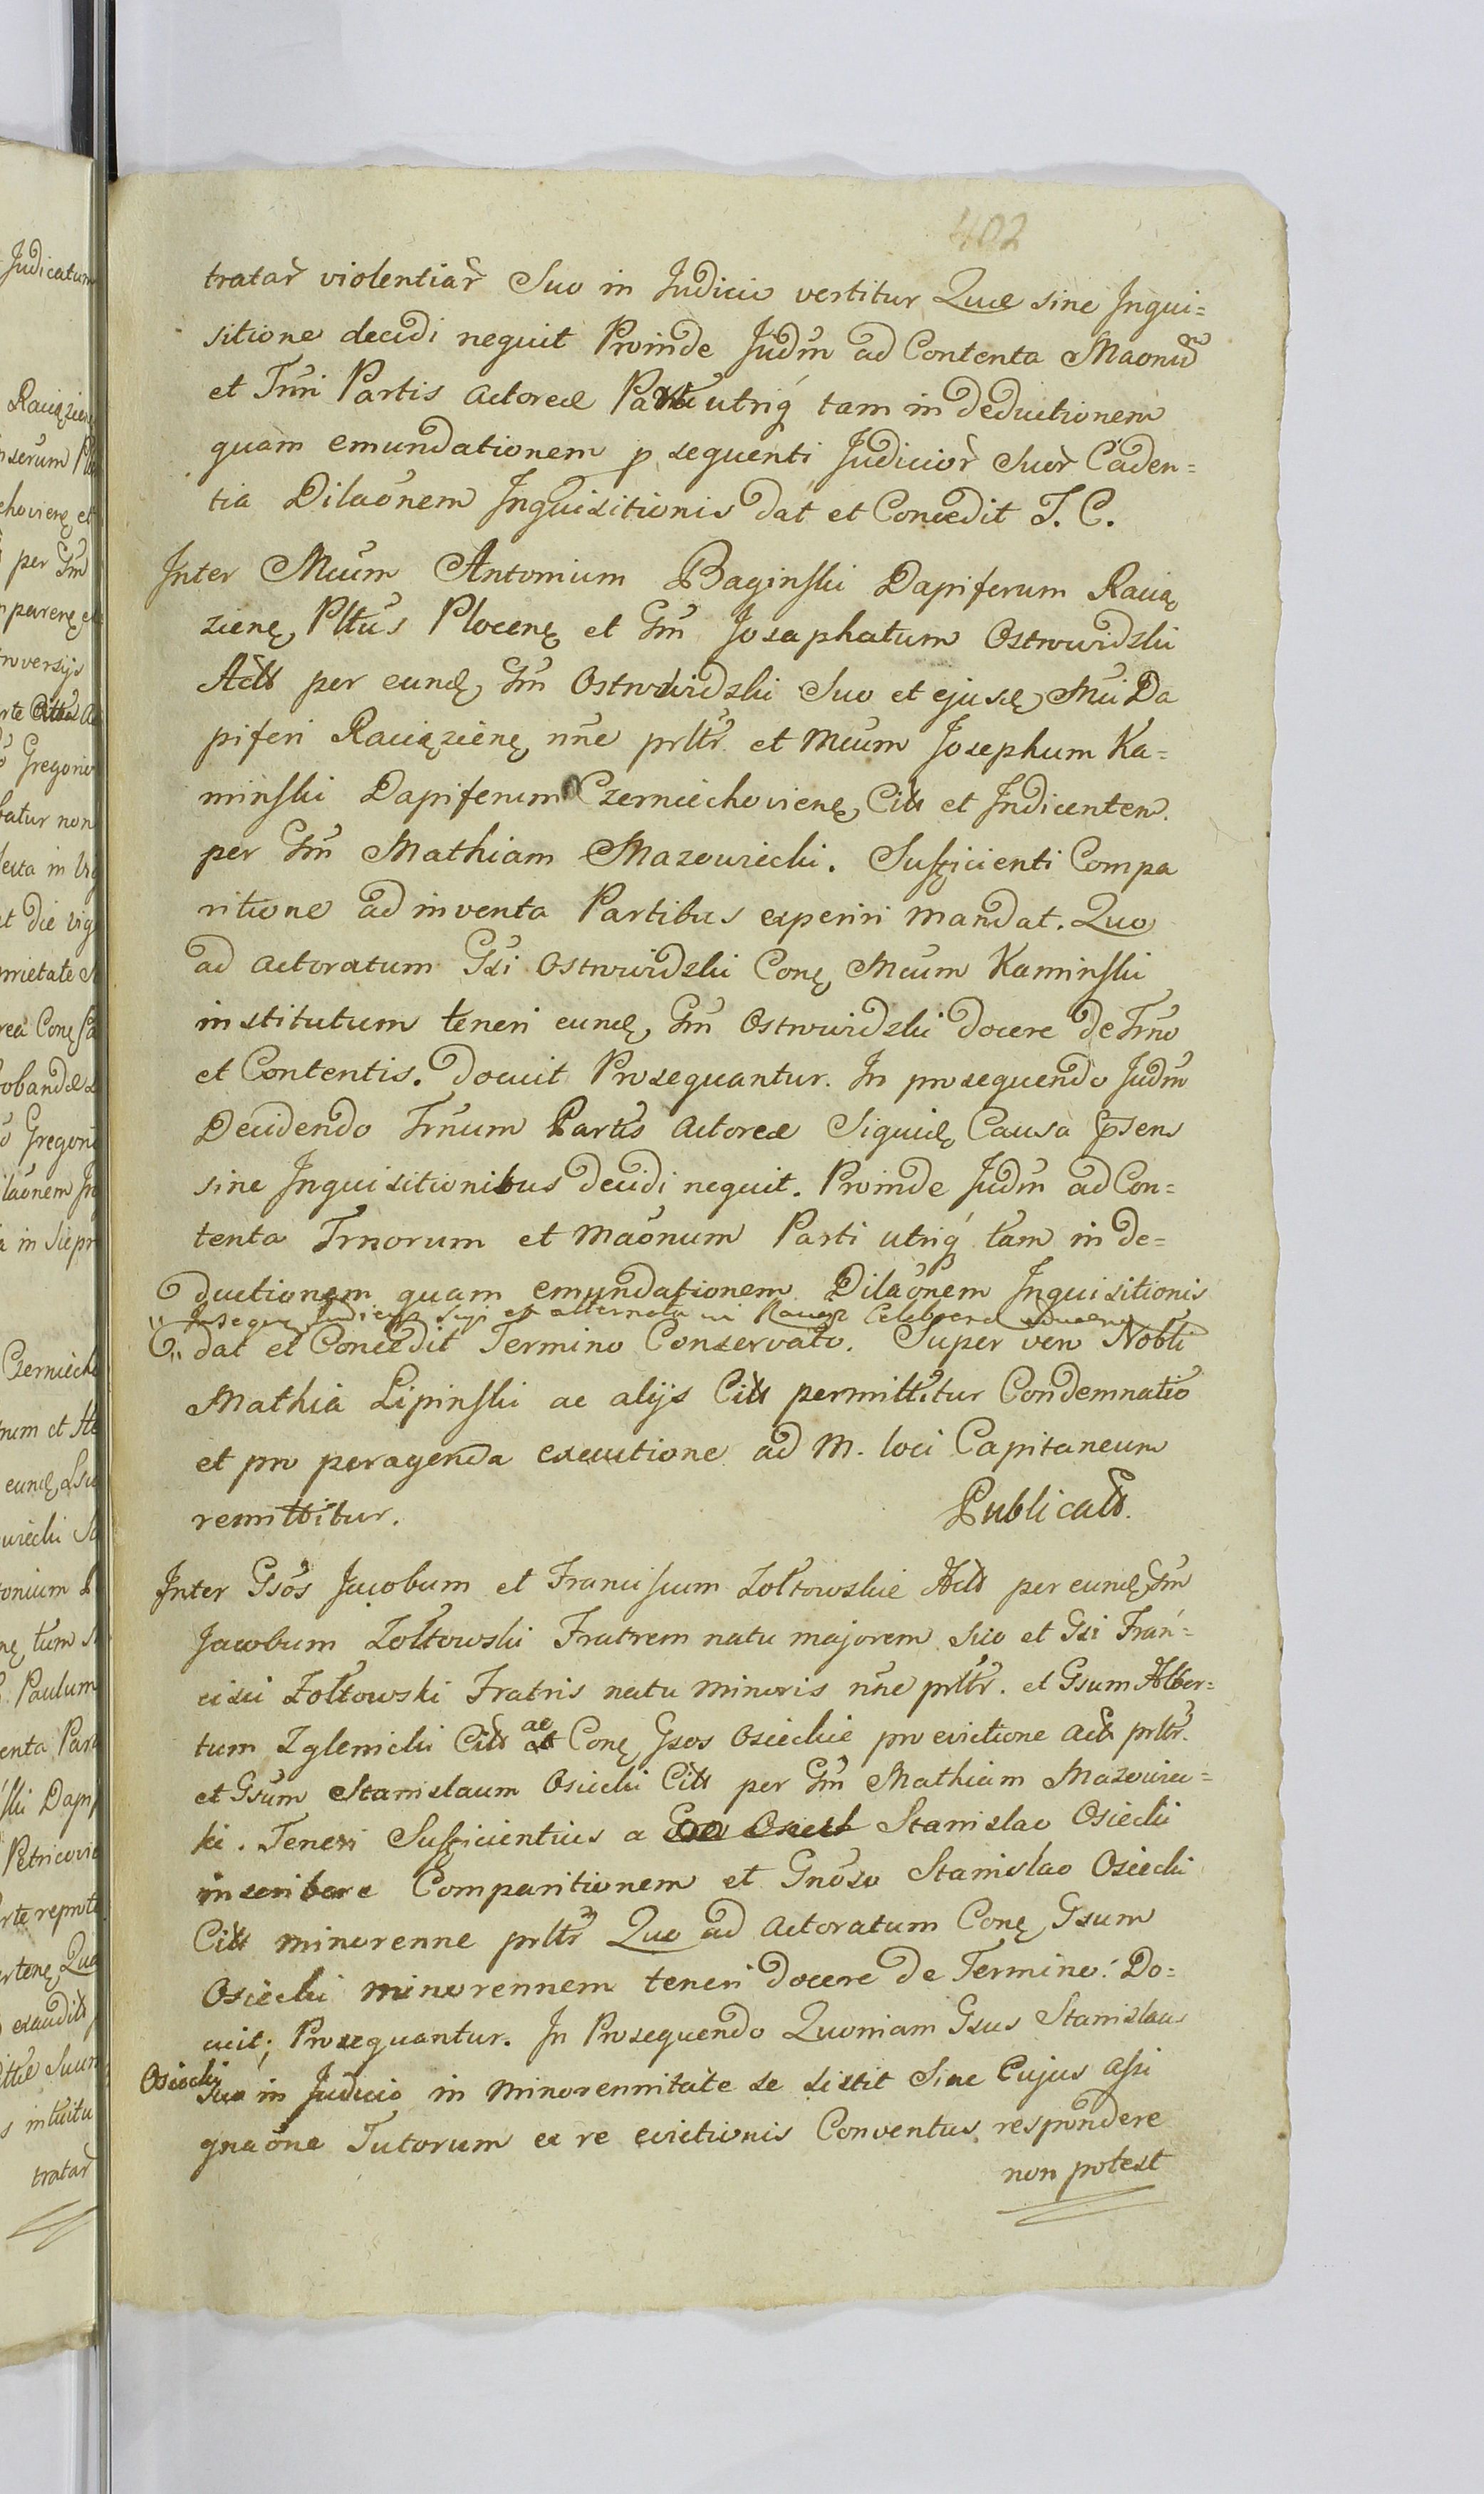 402
tratar violentiar Suo in Judicio vertitur Quæ sine Inqui=
sitione decidi nequit Proinde Judm ad Contenta Maonum
et Trni Partis Actoreæ Parti utriq tam in deductionem
quam emundationem p sequenti Judicior Suor Caden=
tia Dilaonem Inquisitionis dat et Concedit T. C.
Inter Mcum Antonium Baginski Dapiferum Racią
zienę Pltus Plocenę et Gm Josaphatum Ostrowidzki
Acts per eundę Gm Ostrowidzki Suo et ejusdę Mci Da
piferi Raciązienę nne prltr et Mcum Josephum Ka=
minski Dapiferum Czerniechovienę Cits et Indicentem
per Gm Mathiam Mazowiecki. Sufficienti Compa
ritione ad inventa Partibus experiri mandat. Quo
ad actoratum Gsi Ostrowidzki Conę Mcum Kaminski
institutum teneri eundę Gm Ostrowidzki docere de Trno
et Contentis. docuit Prosequantur. In prosequendo Judm
Decidendo Trnum Partis Actoreæ Siquidę Causa psens
sine Inquisitionibus decidi nequit. Proinde Judm ad Con=
tenta Trnorum et maonum Parti utriq tam in de=
ductionem quam emundationem Dilaonem Inquisitionis
dat et Concedit Termino Conservato. Super vero Nobli
Mathia Lipinski ac alijs Cits permittitur Condemnatio
et pro peragenda executione ad M. loci Capitaneum
remittitur. Publicats.
Inter Gsos Jacobum et Franciscum Zołtowskie Acts per eundę Gm
Jacobum Zołtowski Fratrem natu majorem suo et Gsi Fran=
cisci Zołtowski Fratris natu minoris nne prltr. et Gsum Alber=
tum Zglenicki Cits ac Conę Gsos Osieckie pro evictione acts prltr.
et Gsum Stanislaum Osiecki Cits per Gm Mathiam Mazowiec=
ki. Teneri Sufficientius a Stanislao Osiecki
inscribere Comparitionem et Gnoso Stanislao Osiecki
Cits minorenne prltr Quo ad actoratum Conę Gsum
Osiecki minorennem teneri docere de Termino: Do=
cuit; Prosequantur. In Prosequendo Quoniam Gsus Stanislaus
Osiecki suo in Judicio in minorennitate se sistit Sine Cujus assi
gnaone Tutorum ex re evictionis Conventus respondere
non potest